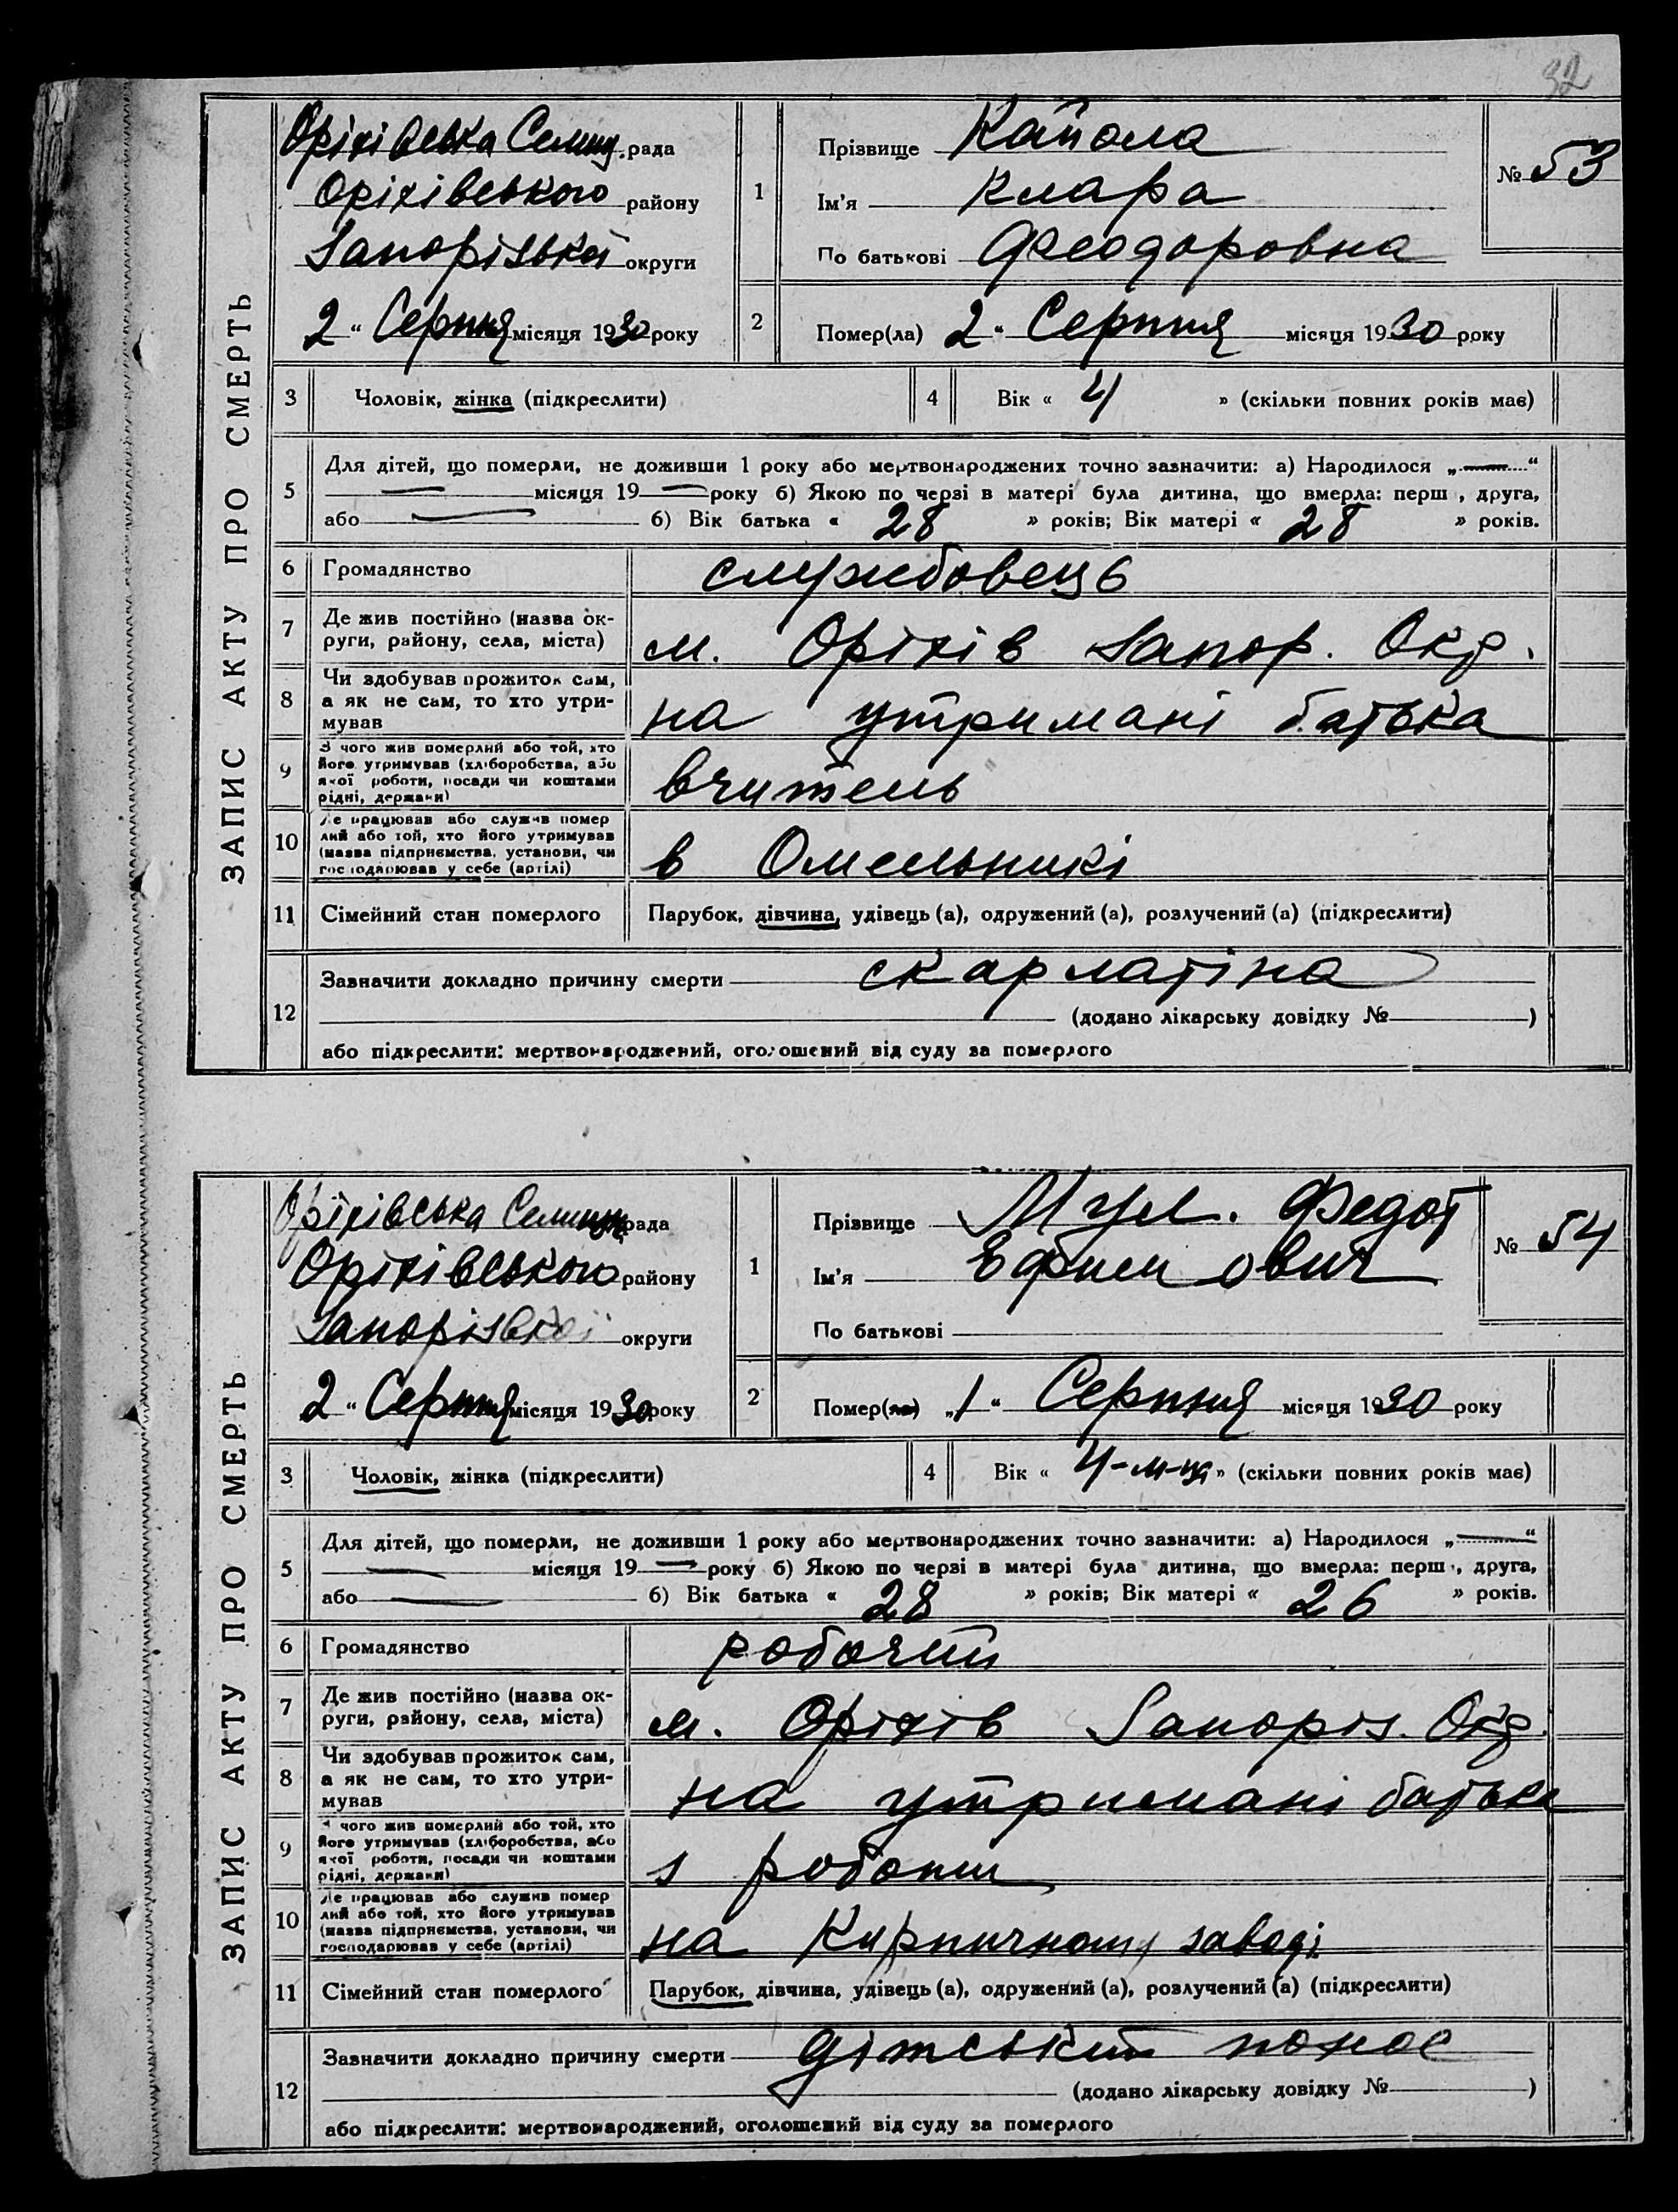 32
ЗАПИС АКТУ ПРО СМЕРТЬ
Оріхівська Селищ. рада
Оріхівського району
Запорізької округи
2 " Серпня місяця 1930 року
1
Прізвище Кайола
Ім'я Клара
По батькові Феодоровна
№ 53
2
Помер(ла) 2 " Серпня місяця 1930 року
3 Чоловік, жінка (підкреслити)
4 Вік « 4 » (скільки повних років має)
5 Для дітей, що померли, не доживши 1 року або мертвонароджених точно зазначити: а) Народилося „—"
— місяця 19— року б) Якою по черзі в матері була дитина, що вмерла: перш , друга,
або — б) Вік батька « 28 » років; Вік матері « 28 » років.
6 Громадянство службовець
7 Де жив постійно (назва ок-
руги, району, села, міста) м. Оріхів Запор. Окр.
8 Чи здобував прожиток сам,
а як не сам, то хто утри-
мував на утримані батька
9 З чого жив померлий або той, хто
його утримував (хліборобства, або
якої роботи, посади чи коштами
рідні, держави) вчитель
10 Де працював або служив помер
лий або той, хто його утримував
(назва підприємства, установи, чи
господарював у себе (артілі) в Омельникі
11 Сімейний стан померлого Парубок, дівчина, удівець (а), одружений (а), розлучений (а) (підкреслити)
12 Зазначити докладно причину смерти скарлатіна
(додано лікарську довідку № )
або підкреслити: мертвонароджений, оголошений від суду за померлого
ЗАПИС АКТУ ПРО СМЕРТЬ
Оріхівська Селищ. рада
Оріхівського району
Запорізької округи
2 " Серпня місяця 1930 року
1
Прізвище Мул. Федот
Ім'я Ефимович
По батькові
№ 54
2
Помер(ла) „1 " Серпня місяця 1930 року
3 Чоловік, жінка (підкреслити)
4 Вік « 4-м-ця » (скільки повних років має)
5 Для дітей, що померли, не доживши 1 року або мертвонароджених точно зазначити: а) Народилося „—"
— місяця 19— року б) Якою по черзі в матері була дитина, що вмерла: перш , друга,
або — б) Вік батька « 28 » років; Вік матері « 26 » років.
6 Громадянство робочий
7 Де жив постійно (назва ок-
руги, району, села, міста) м. Оріхів Запоріз. Окр.
8 Чи здобував прожиток сам,
а як не сам, то хто утри-
мував на утримані батька
9 З чого жив померлий або той, хто
його утримував (хліборобства, або
якої роботи, посади чи коштами
рідні, держави) з роботи
10 Де працював або служив помер
лий або той, хто його утримував
(назва підприємства, установи, чи
господарював у себе (артілі) на Кирпичному заводі
11 Сімейний стан померлого Парубок, дівчина, удівець (а), одружений (а), розлучений (а) (підкреслити)
12 Зазначити докладно причину смерти дітський понос
(додано лікарську довідку № )
або підкреслити: мертвонароджений, оголошений від суду за померлого